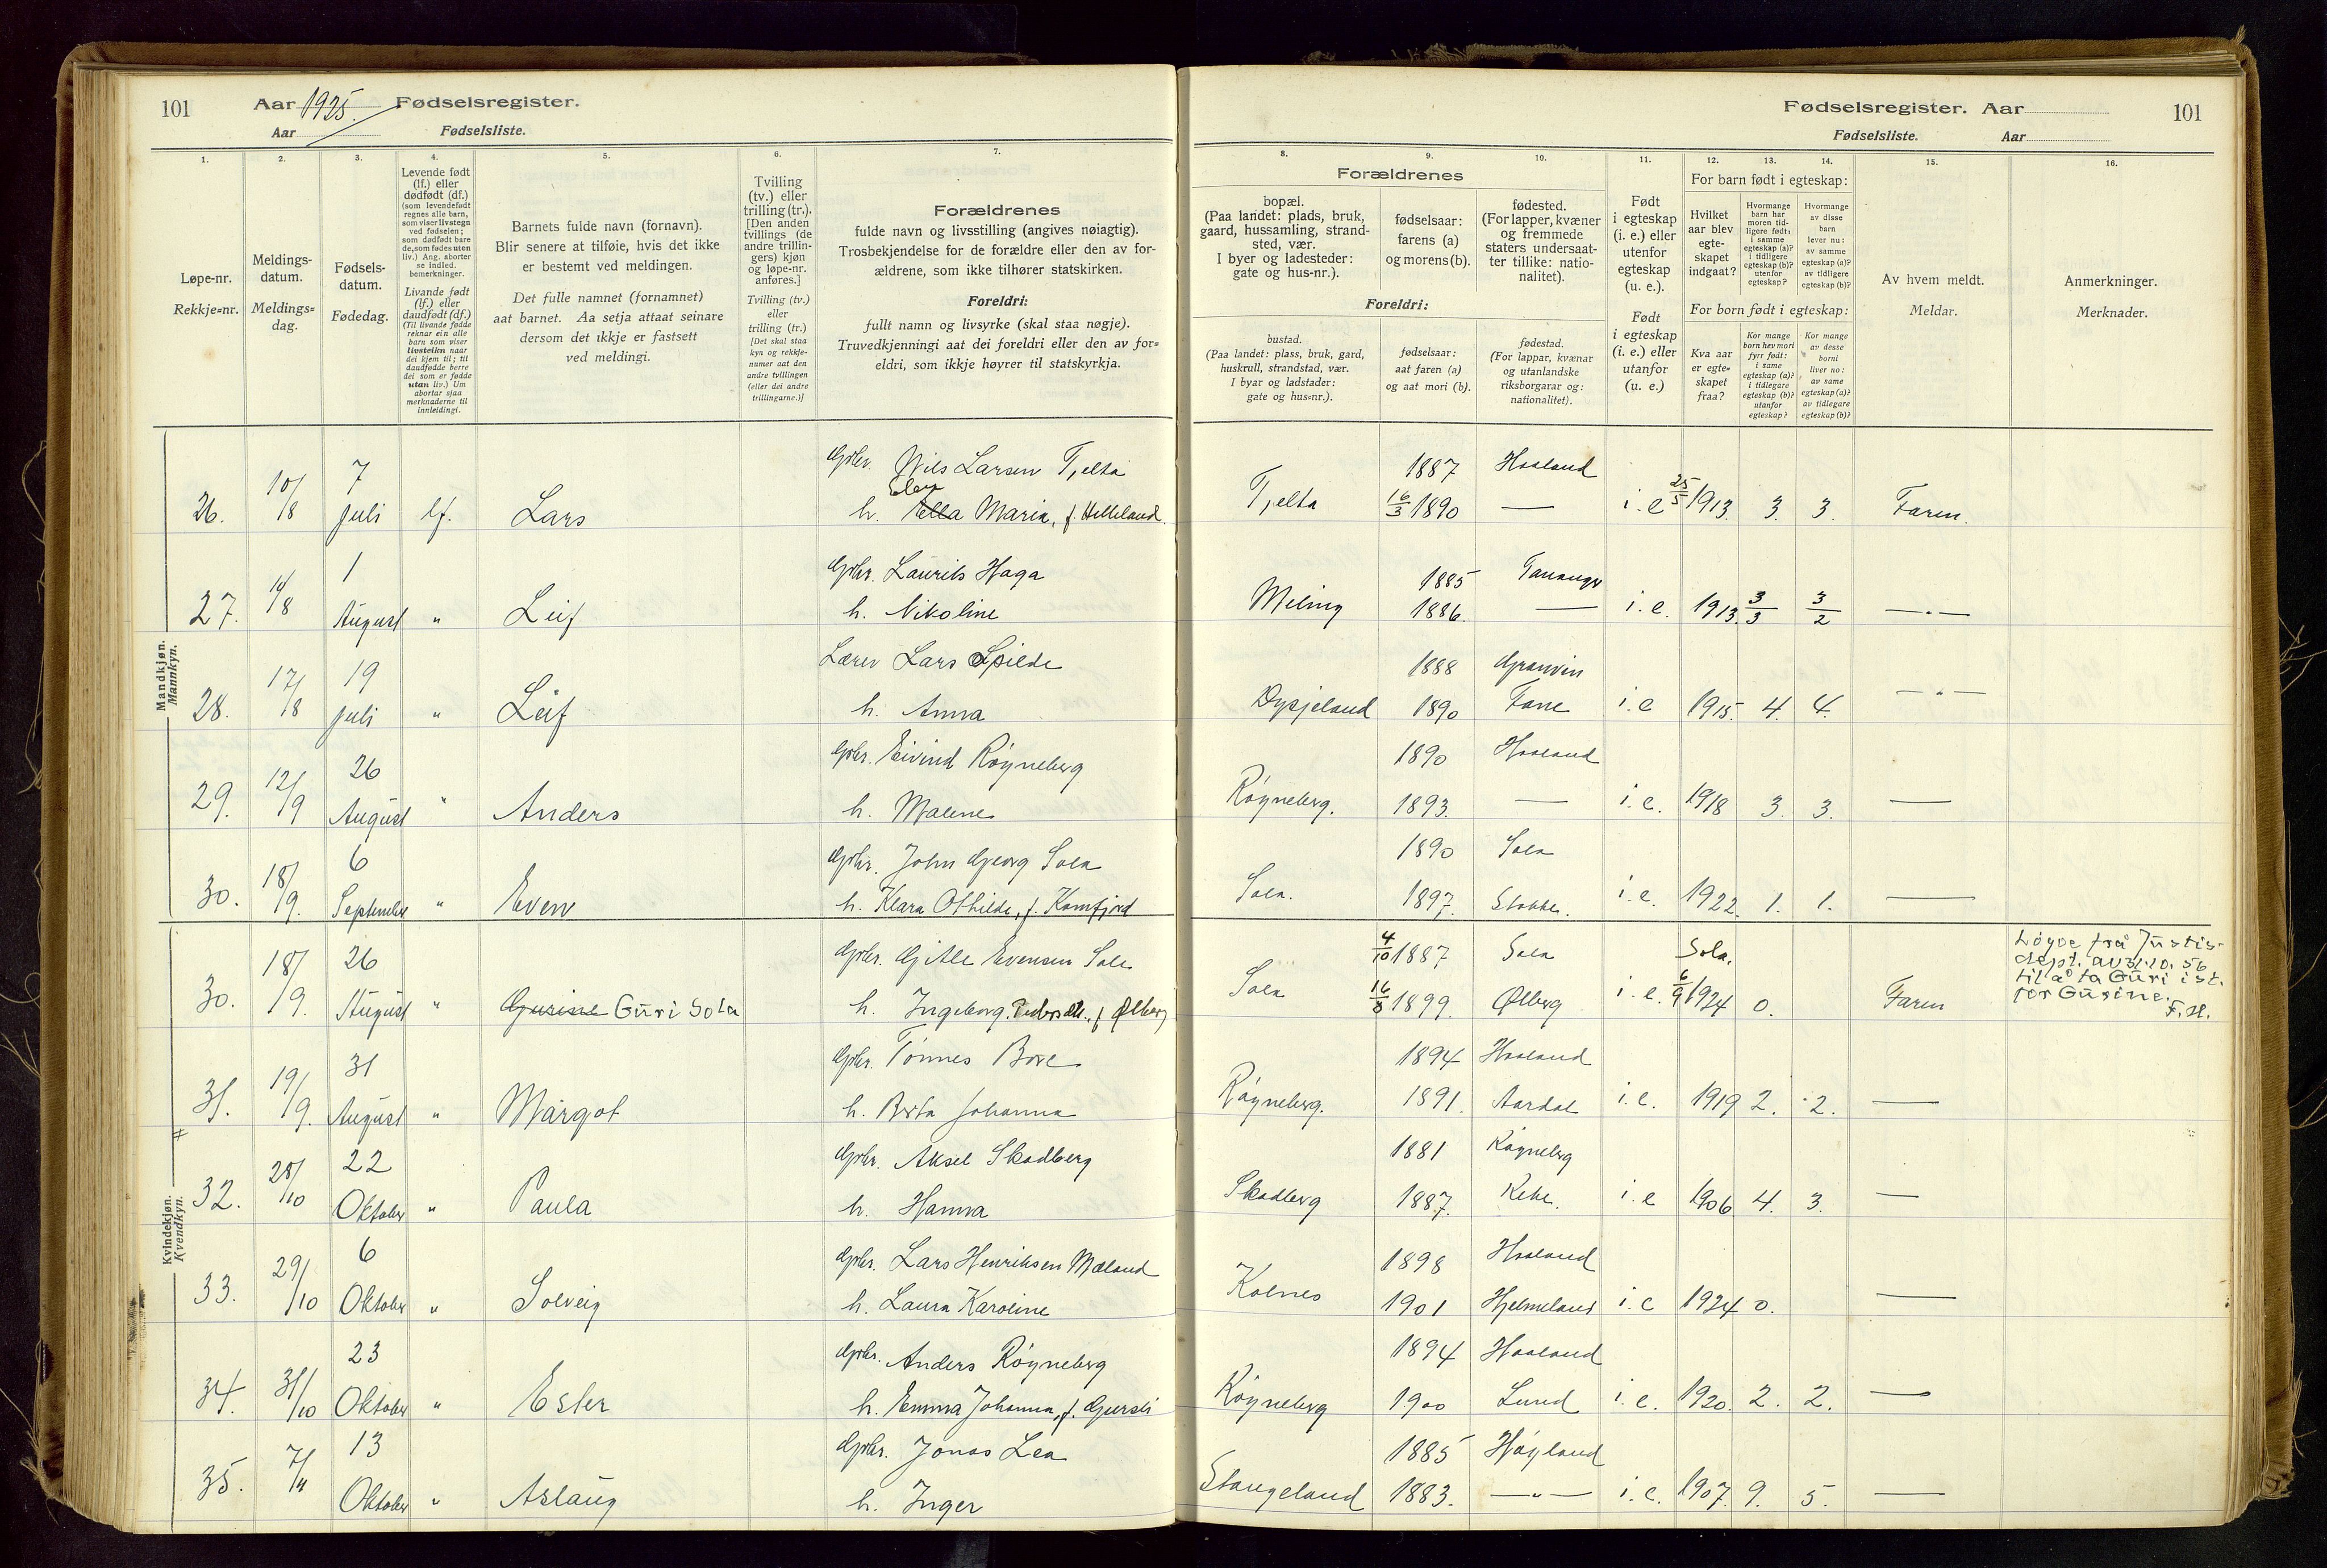 101 Aar 1925. Fødselsregister.
Aar Fødselsliste.
1. 2. 3. 4. 5. 6. 7.
Løpe-nr.
Rekkje=nr.
Meldings-
datum.
Meldings=
dag.
Fødsels-
datum.
Fødedag.
Levende født
(lf.) eller
dødfødt (df.)
(som levendefødt
regnes alle barn,
som viser livstegn
ved fødselen;
som dødfødt bare
de, som fødes uten
liv.) Ang. aborter
se indled.
bemerkninger.
Livande født
(lf.) eller
daudfødt (df.)
(Til livande fødde
reknar ein alle
barn som viser
livsteikn naar
dei kjem til; til
daudfødde berre
dei som er fødde
utan liv.) Um
abortar sjaa
merknaderne til
innleidingi.
Barnets fulde navn (fornavn).
Blir senere at tilføie, hvis det ikke
er bestemt ved meldingen.
Det fulle namnet (fornamnet)
aat barnet. Aa setja attaat seinare
dersom det ikkje er fastsett
ved meldingi.
Tvilling
(tv.) eller
trilling (tr.).
[Den anden
tvillings (de
andre trillin-
gers) kjøn
og løpe-nr.
anføres.]
Tvilling (tv.)
eller
trilling (tr.)
[Det skal staa
kyn og rekkje-
numer aat den
andre tvillingen
(eller dei andre
trillingarne.)]
Forældrenes
fulde navn og livsstilling (angives nøiagtig).
Trosbekjendelse for de forældre eller den av for-
ældrene, som ikke tilhører statskirken.
Foreldri:
fullt namn og livsyrke (skal staa nøgje).
Truvedkjenningi aat dei foreldri eller den av for=
eldri, som ikkje høyrer til statskyrkja.
Mandkjøn.
Mannkyn.
26. 10/8 7 juli lf. Lars
Gbr. Nils Larsen Tjelta
Elen
h. Ella Maria, f. Helleland.
27. 14/8 1 August " Leif
Gbr. Laurits Haga
h. Nikoline
28. 17/8 19 juli " Leif
Lærer Lars Spilde
h. Anna
29. 12/9 26 August " Anders
Gbr. Eivind Røyneberg
h. Malene
30. 18/9. 6 September " Even
Gbr. John Georg Sola
h. Klara Othilde, f. Komfjord
Kvindekjøn.
Kvendkyn.
30. 18/9. 26 August " Gurine Guri Sola
Gbr. Gitle Evensen Sola
h. Ingeborg. Pedersdtr., f. Ølberg
31. 19/9. 31 August " Margot
Gbr. Tønnes Bore
h. Berta Johanna
32. 28/10 22 Oktober " Paula
Gbr. Aksel Skadberg
h. Hanna
33. 29/10 6 Oktober " Solveig
Gbr. Lars Henriksen Mæland
h. Laura Karoline
34. 31/10 23 Oktober " Ester
Gbr. Anders Røyneberg
h. Emma Johanna, f.
35. 7/11 13 Oktober " Aslaug
Gbr. Jonas Lea
h. Inger
Fødselsregister. Aar 101
Fødselsliste. Aar
8. 9. 10. 11. 12. 13. 14. 15. 16.
Forældrenes
bopæl.
(Paa landet: plads, bruk,
gaard, hussamling, strand-
sted, vær.
I byer og ladesteder:
gate og hus-nr.).
fødselsaar:
farens (a)
og morens (b).
fødested.
(For lapper, kvæner
og fremmede
staters undersaat-
ter tillike: natio-
nalitet).
Foreldri:
bustad.
(Paa landet: plass, bruk, gard,
huskrull, strandstad, vær.
I byar og ladstader:
gate og hus=nr.).
fødselsaar:
aat faren (a)
og aat mori (b).
fødestad.
(For lappar, kvænar
og utanlandske
riksborgarar og:
nationalitet).
Født
i egteskap
(i. e.) eller
utenfor
egteskap
(u. e.).
Født
i egteskap
(i. e.) eller
utanfor
(u. e.)
For barn født i egteskap:
Hvilket
aar blev
egte-
skapet
indgaat?
Hvormange
barn har
moren tid-
ligere født:
i samme
egteskap (a)?
i tidligere
egteskap (b)?
utenfor
egteskap?
Hvormange
av disse
barn
lever nu:
av samme
egteskap (a)?
av tidligere
egteskap (b)?
For born født i egteskap:
Kva aar
er egte=
skapet
fraa?
Kor mange
born hev mori
fyrr født:
i same
egteskap (a)?
i tidlegare
egteskap (b)?
utanfor
egteskap?
Kor mange
av desse
borni
liver no:
av same
egteskap (a)?
av tidlegare
egteskap (b)?
Av hvem meldt.
Meldar.
Anmerkninger.
Merknader.
1887 Haaland
Tjelta 16/3 1890 — i. e 25/5 1913. 3. 3. Faren.
1885 Tananger
Meling 1886. — i. e. 1913. 3/3 3/2 —"—
1888 Granvin
Dysjeland 1890 Fane i. e 1915. 4. 4. —"—
1890 Haaland
Røyneberg. 1893. — i. e. 1918 3. 3. —
1890 Sola
Sola. 1897. Stokke. i. e. 1922. 1. 1. —
4/10 1887 Sola Sola.
Sola 16/8 1899. Ølberg i. e. 6/9 1924 0. Faren
Løyve frå Justis-
dept. av 31.10.56
til å ta Guri ist.
for Gurine.
F. H.
1894 Haaland
Røyneberg. 1891. Aardal i. e. 1919 2. 2. —
1881 Røyneberg
Skadberg 1887. i. e 1906. 4. 3. —
1898 Haaland
Kolnes 1901 Hjelmeland i. e 1924 0. —
1894 Haaland
Røyneberg 1900 Lund i. e. 1920. 2. 2. —
1885 Høyland
Stangeland 1883. —"— i. e. 1907. 9. 5. —